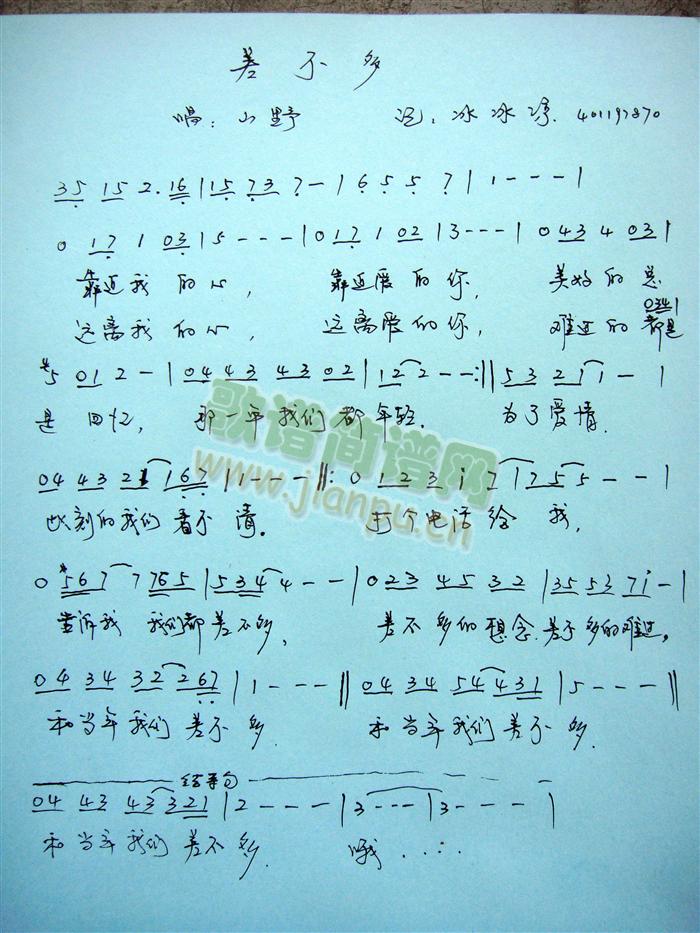 差不多
唱：山野 记：冰冰 401197870
35 15 2. 16 | 15 73 7 - | 6 5 5 7 | 1 - - - |
0 17 1 03 | 5 - - - | 0 17 1 02 | 3 - - - | 0 43 4 03 |
靠近我的心， 靠近爱的你， 美好的总
远离我的心， 远离爱的你， 难过的都是
0341
#5 01 2 - | 04 43 43 02 | 12 2 - - :|| 53 21 1 - |
是回忆， 那一年我们都年轻. 为了爱情
04 43 21 167 | 1 - - - ||: 0 123 i 7 | 75 5 - - |
此刻的我们看不清。 打个电话给我，
0 #567 7765 | 534 4 - - | 0 23 45 32 | 35 53 7i - |
告诉我 我们都差不多， 差不多的想念.差不多的难过。
04 34 32 267 | 1 - - - || 04 34 54 431 | 5 - - - ||
和当年我们差不多. 和当年我们差不多.
结束句
04 43 43 321 | 2 - - - | 3 - - - | 3 - - - |
和当年我们差不多. 哦......
歌谱简谱网
www.jianpu.cn